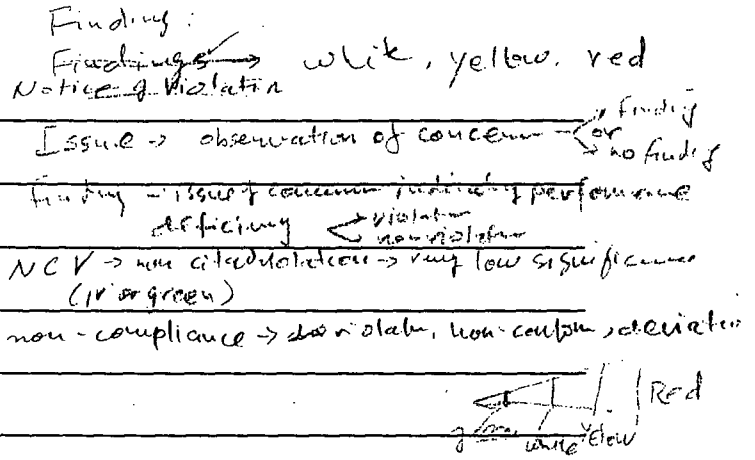 Finding:
Findings → white, yellow, red
Notice of Violation
Issue → observation of concern → finding
or
→ no finding
finding - issue of concern indicating performance
deficiency violation
nonviolation
NCV → non cited violation → very low significance
(IV or green)
non-compliance → violatn, non-conform, deviation
Red
green white Yellow